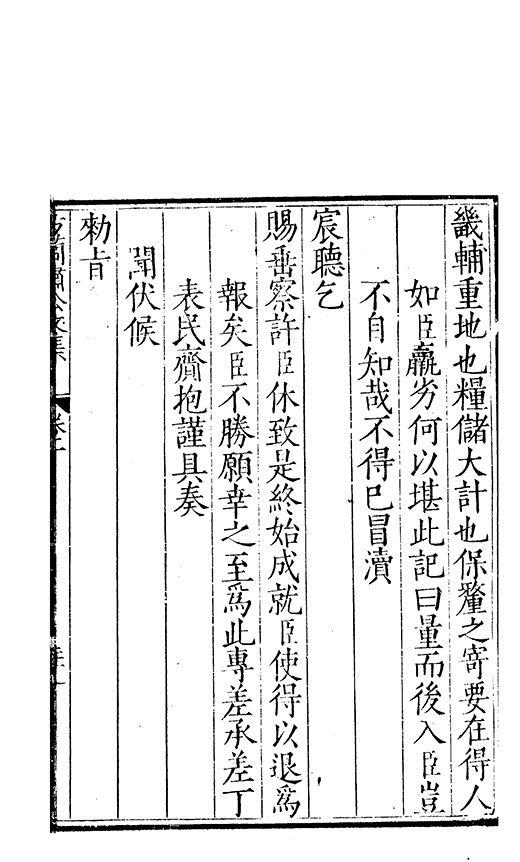 畿輔重地也糧儲大計也保釐之寄要在得人
如臣羸劣何以堪此記曰量而後入臣豈
不自知哉不得已冒瀆
宸聽乞
賜垂察許臣休致是終始成就臣使得以退爲
報矣臣不勝願幸之至爲此專差承差丁
表民齎抱謹具奏
聞伏候
勑旨
公文集